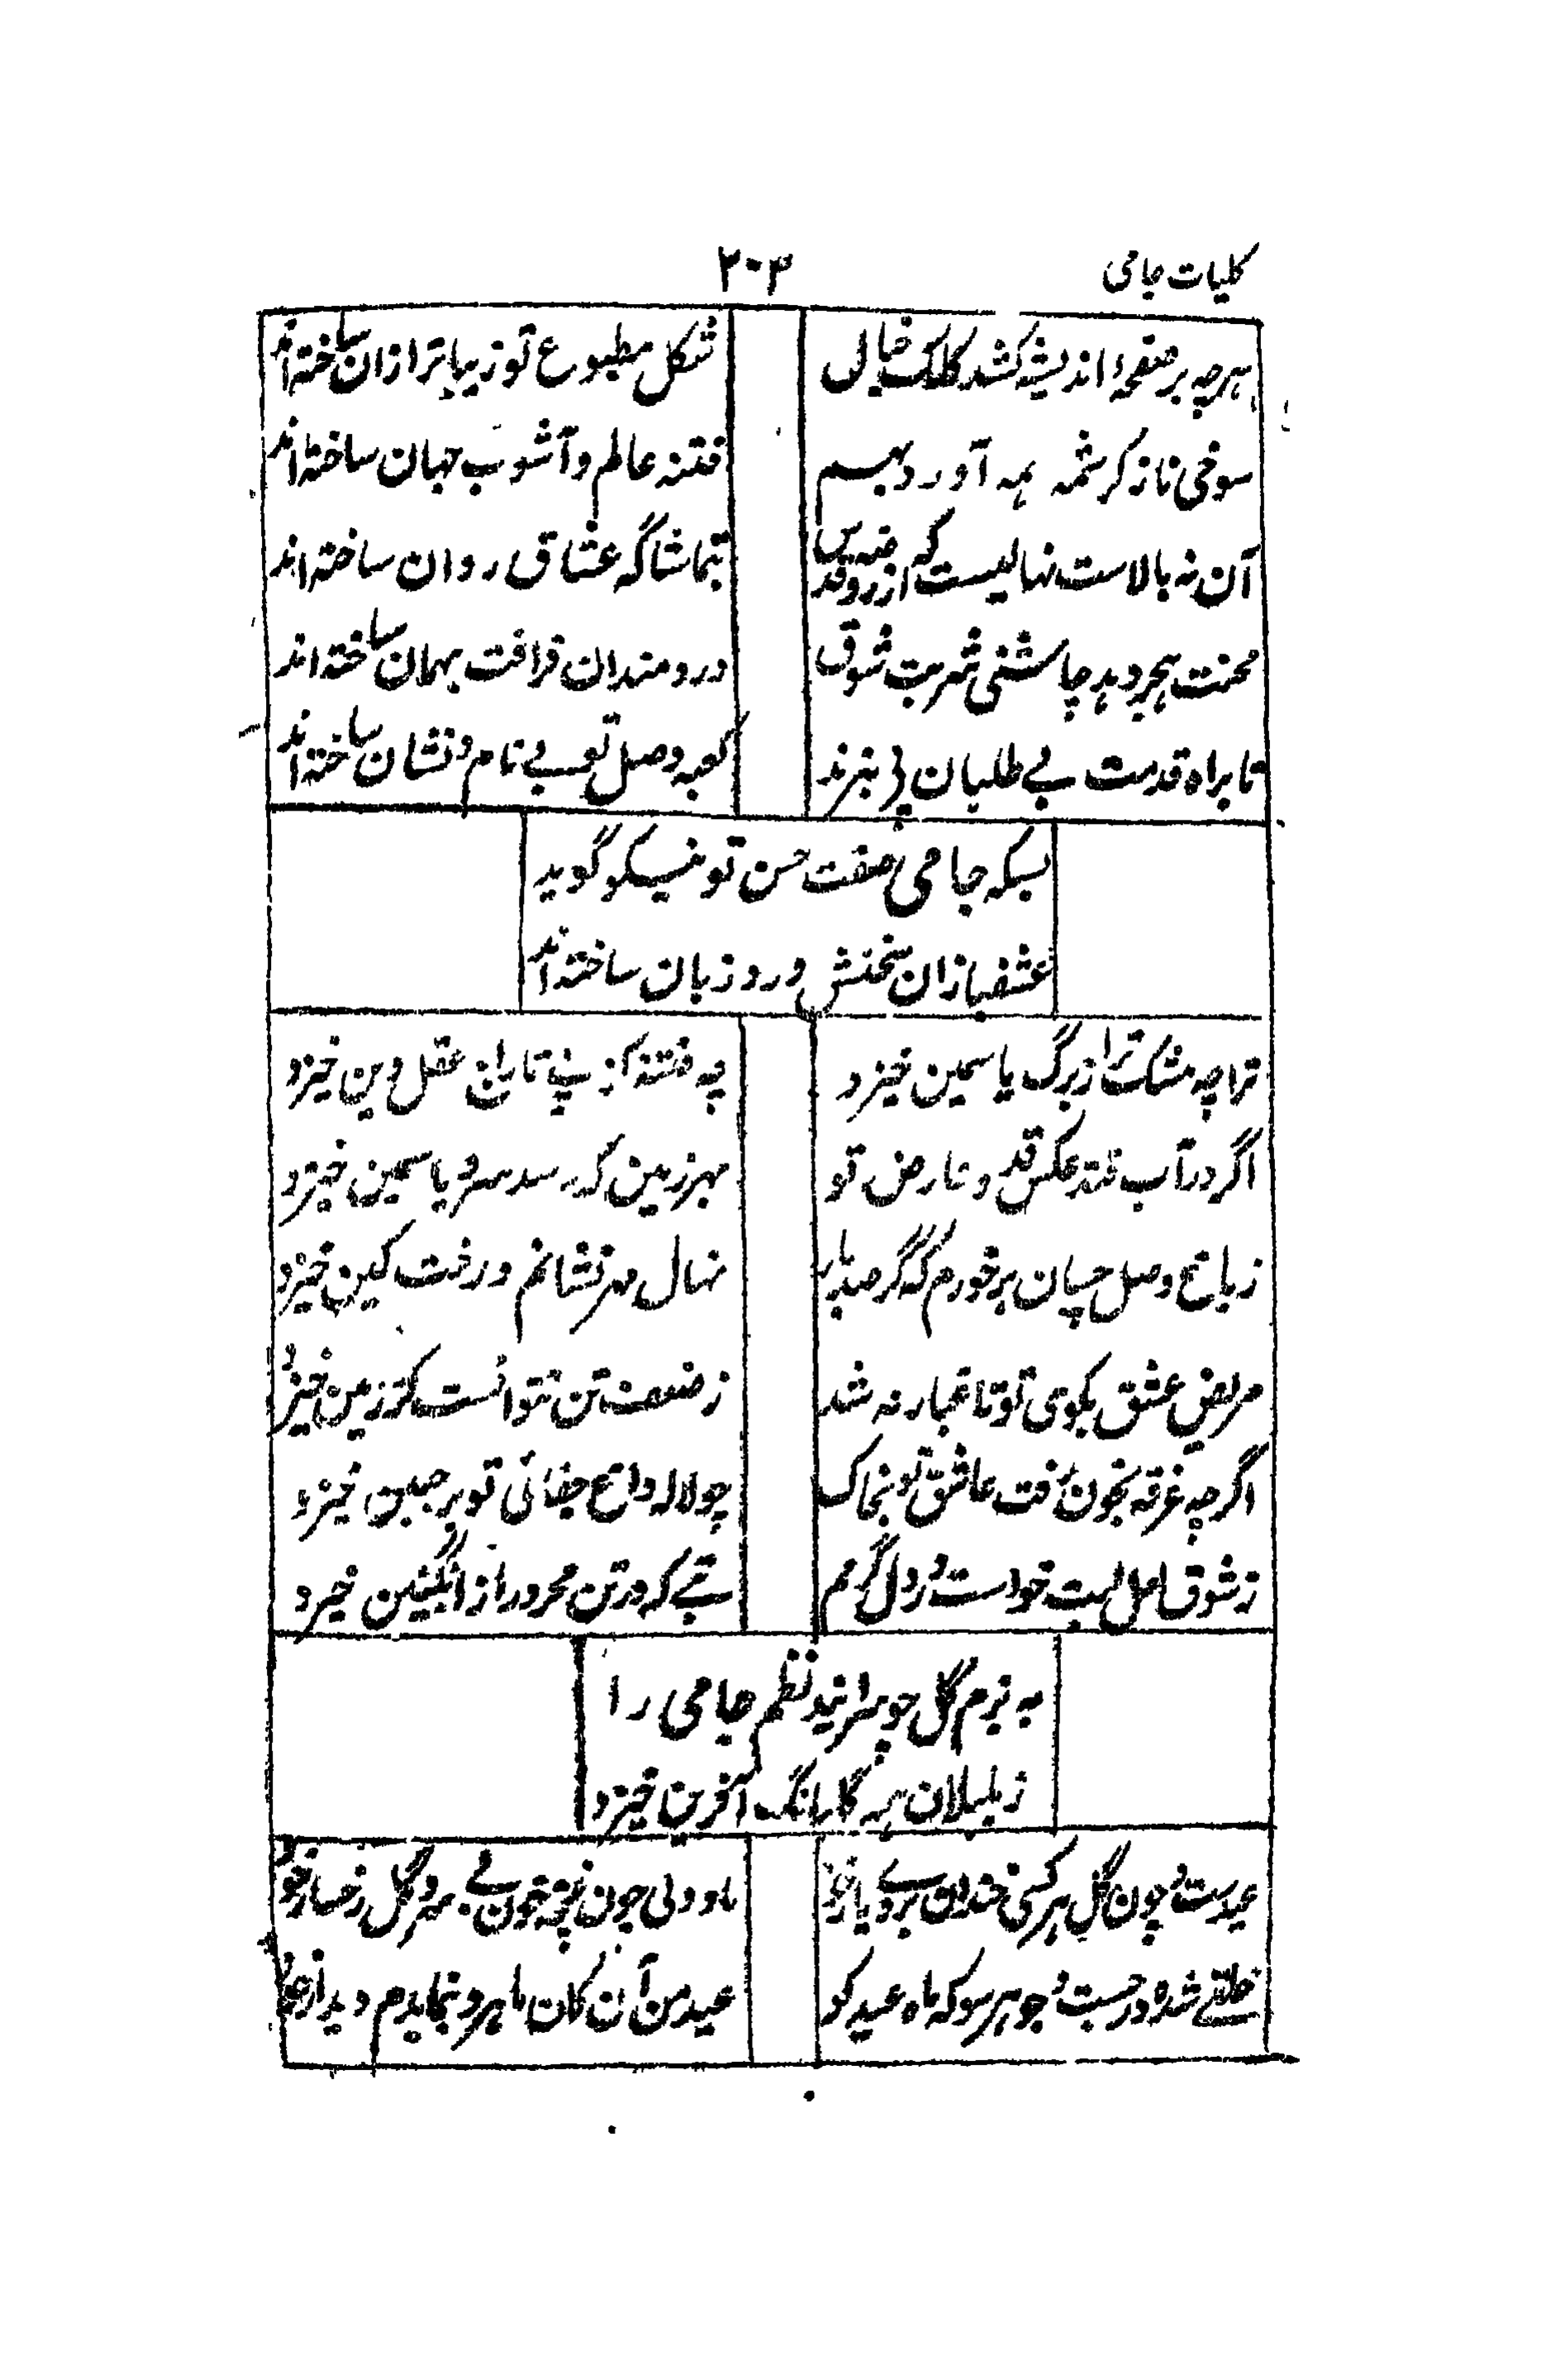 کلیات جامی ۳۰۳
هرچه بر صفحهٔ اندیشه کشد کلک خیال شکل مطبوع تو زیباتر ازان ساخته اند
شوخی ناز کرشمه همه آورد بهم فتنه عالم و آشوب جهان ساخته اند
آن نه بالاست نهالیست که از روضه قدس بتماشاگه عشاق روان ساخته اند
محنت هجر دهد چاشنی شربت شوق دردمندان فراقت بهمان ساخته اند
تا براه قدمت بی طلبان پی نبرند کعبه وصل تو بی نام و نشان ساخته اند
بسکه جامی صفت حسن تو نیکو گوید
عشقبازان سخنش ورد زبان ساخته اند
ترا چه مشک تر از برگ یاسمین خیزد چه فتنه کز پے تاراج عقل و دین خیزد
اگر در آب فتد عکس قد و عارض تو بهر زمین که رسد سرو یاسمین خیزد
ز باغ وصل چسان برخورم که گر صد بار نهال مهر نشانم درخت کین خیزد
مریض عشق بکوی تو تا غبار نه شد ز ضعف تن نتوانست کز زمین خیزد
اگرچه غرقه بخون خفت عاشق تو بخاک چو لاله داغ جفائی تو بر جبین خیزد
ز شوق لعل لبت خواست در دل گرمم تبے که در تن محرور از انگبین خیزد
به بزم گل چو سرایند نظم جامی را
ز بلبلان همه گلبانگ آفرین خیزد
عیدست و چون گل هر کسی خندان بروے یار خود ما و دلی چون غنچه خون بے سرو گل رخسار خود
خلقے شده در جست و جو هر سو که ماه عید کو عید من آن کان ماهرو بنمایدم دیدار خود